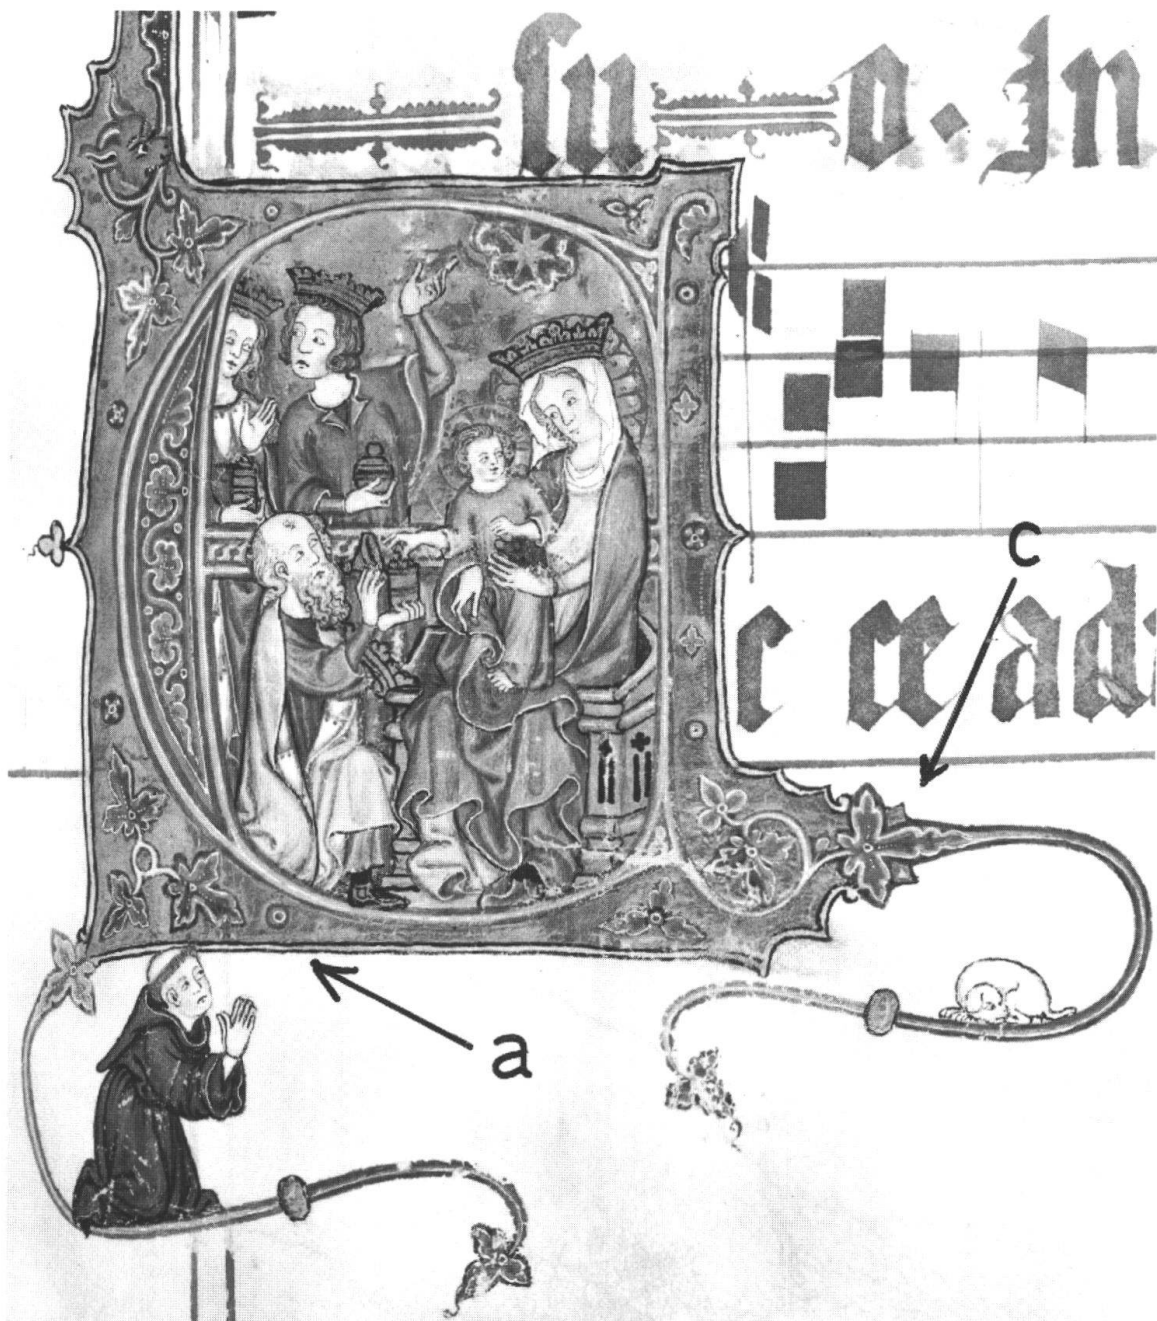 su-o. In
c
c ce ad
a